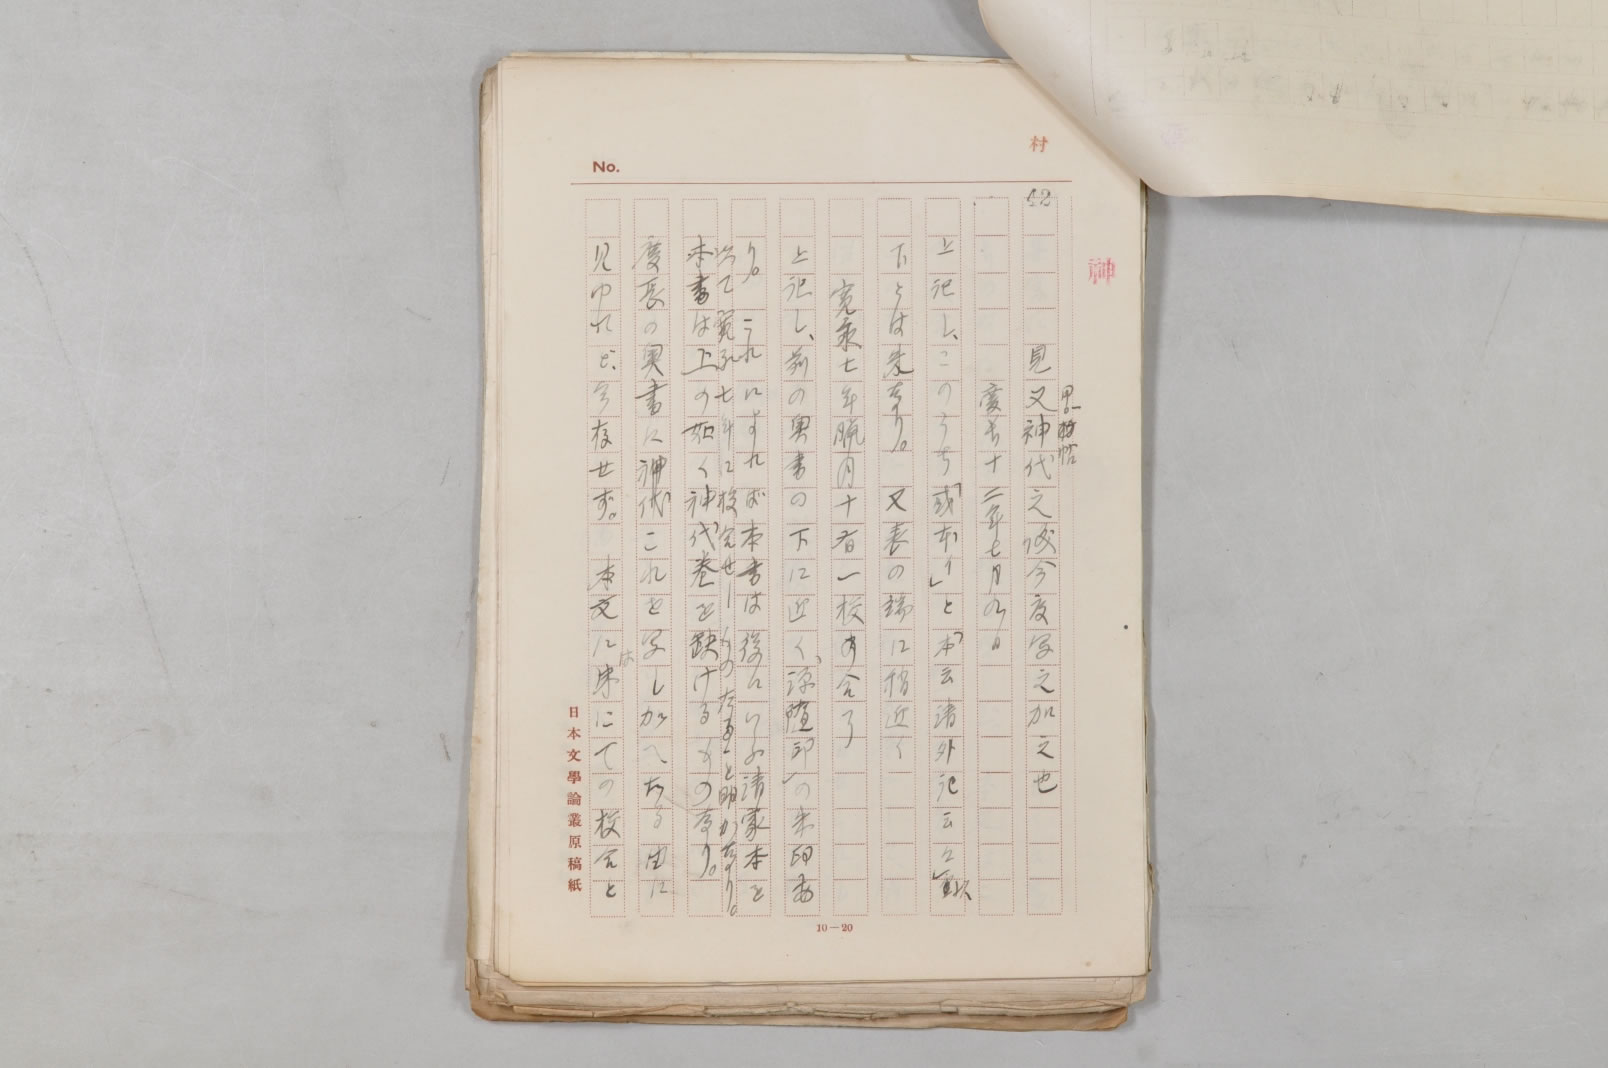 村
No.
神
42
見又神代之 今度写之加之也
慶長十二年七月九日
上記し、このうち「或本イ」と「本云清外記云々」
下とは朱なり。又表の端に稍近く
寛永七年臘月十有一校合了
上記し、前の奥書の下に近く、「印」の朱印あ
り。これによれば本書は後にいふ清家本を
以て寛永七年に校合せしものなること明かなり。
本書は上の如く神代巻を缺けるもの有り。
慶長の奥書に神代これを写しかへたる由に
見ゆれど、今存せず。本文には朱にての校合と
日本文學論叢原稿紙
10－20